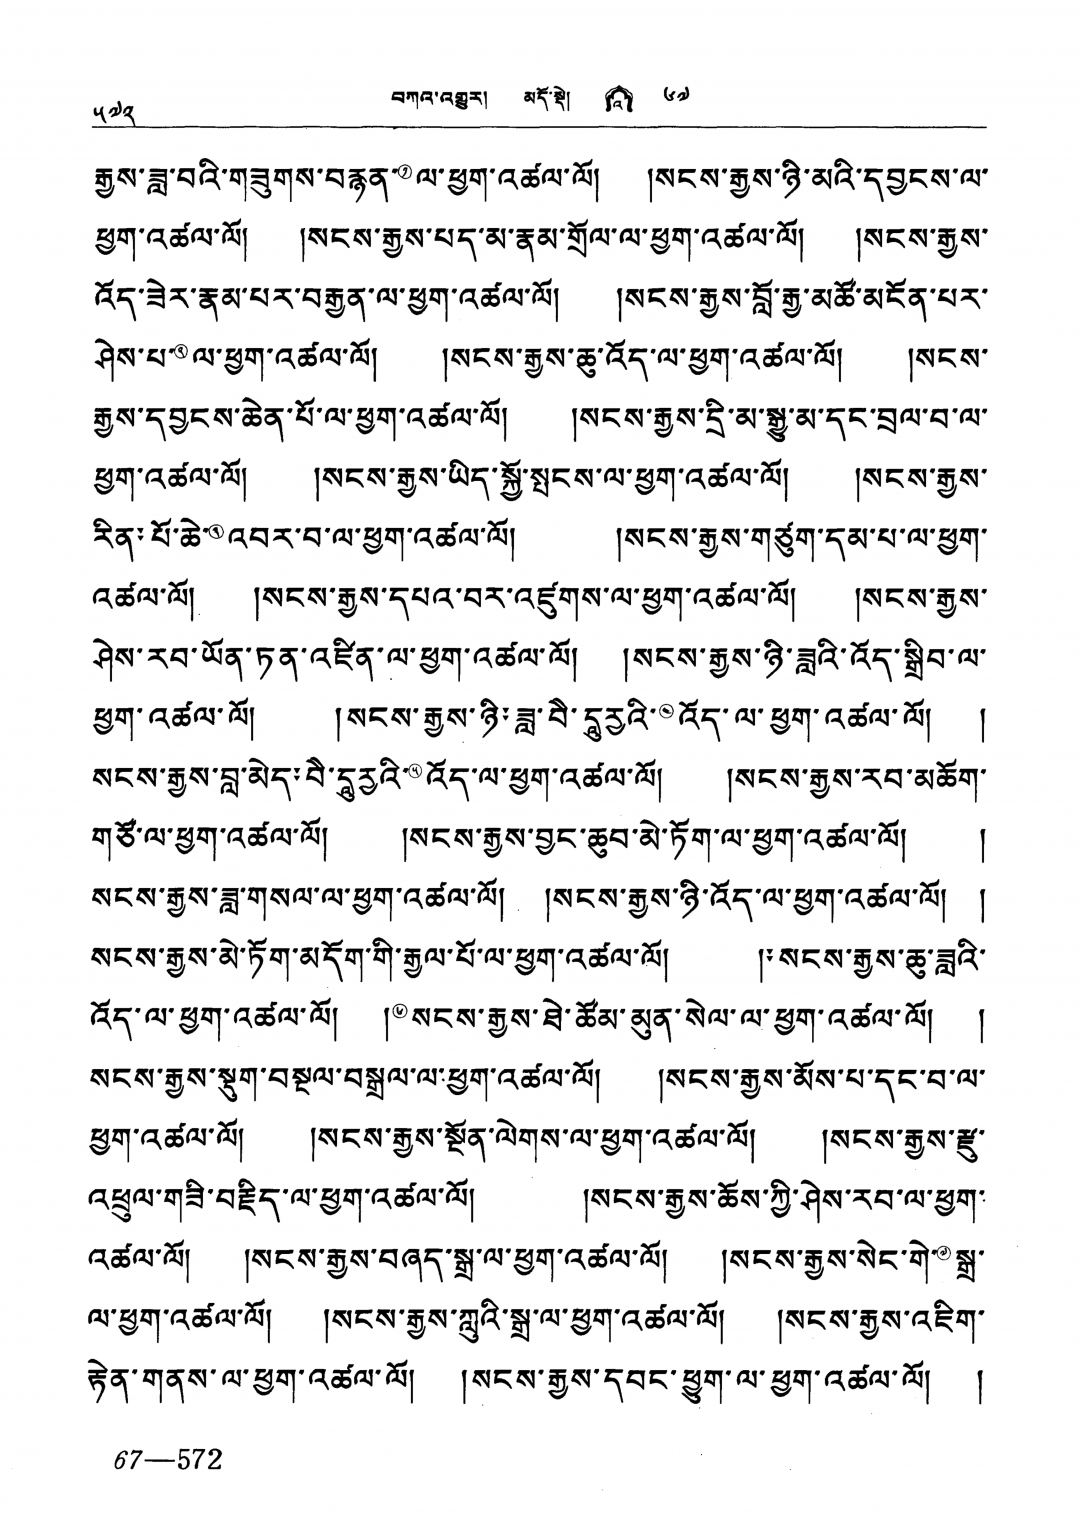 ༥༧༢ བཀའ་འགྱུར། མདོ་སྡེ། ༦༧
རྒྱས་ཟླ་བའི་གཟུགས་བརྙན་①ལ་ཕྱག་འཚལ་ལོ། །སངས་རྒྱས་ཉི་མའི་དབྱངས་ལ་
ཕྱག་འཚལ་ལོ། །སངས་རྒྱས་པད་མ་རྣམ་གྲོལ་ལ་ཕྱག་འཚལ་ལོ། །སངས་རྒྱས་
འོད་ཟེར་རྣམ་པར་བརྒྱན་ལ་ཕྱག་འཚལ་ལོ། །སངས་རྒྱས་བློ་རྒྱ་མཚོ་མངོན་པར་
ཤེས་པ་②ལ་ཕྱག་འཚལ་ལོ། །སངས་རྒྱས་ཆུ་འོད་ལ་ཕྱག་འཚལ་ལོ། །སངས་
རྒྱས་དབྱངས་ཆེན་པོ་ལ་ཕྱག་འཚལ་ལོ། །སངས་རྒྱས་དྲི་མ་སྒྱུ་མ་དང་བྲལ་བ་ལ་
ཕྱག་འཚལ་ལོ། །སངས་རྒྱས་ཡིད་སྐྱོ་སྤངས་ལ་ཕྱག་འཚལ་ལོ། །སངས་རྒྱས་
རིན་༔པོ་ཆེ་③འབར་བ་ལ་ཕྱག་འཚལ་ལོ། །སངས་རྒྱས་གཙུག་དམ་པ་ལ་ཕྱག་
འཚལ་ལོ། །སངས་རྒྱས་དཔའ་བར་འཛུགས་ལ་ཕྱག་འཚལ་ལོ། །སངས་རྒྱས་
ཤེས་རབ་ཡོན་ཏན་འཛིན་ལ་ཕྱག་འཚལ་ལོ། །སངས་རྒྱས་ཉི་ཟླའི་འོད་སྒྲིབ་ལ་
ཕྱག་འཚལ་ལོ། །སངས་རྒྱས་ཉི་༔ཟླ་བཻ་དཱུརྱའི་④འོད་ལ་ཕྱག་འཚལ་ལོ། །
སངས་རྒྱས་བླ་མེད་༔བཻ་དཱུརྱའི་⑤འོད་ལ་ཕྱག་འཚལ་ལོ། །སངས་རྒྱས་རབ་མཆོག་
གཙོ་ལ་ཕྱག་འཚལ་ལོ། །སངས་རྒྱས་བྱང་ཆུབ་མེ་ཏོག་ལ་ཕྱག་འཚལ་ལོ། །
སངས་རྒྱས་ཟླ་གསལ་ལ་ཕྱག་འཚལ་ལོ། །སངས་རྒྱས་ཉི་འོད་ལ་ཕྱག་འཚལ་ལོ། །
སངས་རྒྱས་མེ་ཏོག་མདོག་གི་རྒྱལ་པོ་ལ་ཕྱག་འཚལ་ལོ། །༔སངས་རྒྱས་ཆུ་ཟླའི་
འོད་ལ་ཕྱག་འཚལ་ལོ། །⑥སངས་རྒྱས་ཐེ་ཚོམ་མུན་སེལ་ལ་ཕྱག་འཚལ་ལོ། །
སངས་རྒྱས་སྡུག་བསྔལ་བསྒྲལ་ལ་ཕྱག་འཚལ་ལོ། །སངས་རྒྱས་མོས་པ་དང་བ་ལ་
ཕྱག་འཚལ་ལོ། །སངས་རྒྱས་སྔོན་ལེགས་ལ་ཕྱག་འཚལ་ལོ། །སངས་རྒྱས་རྫུ་
འཕྲུལ་གཟི་བརྗིད་ལ་ཕྱག་འཚལ་ལོ། །སངས་རྒྱས་ཆོས་ཀྱི་ཤེས་རབ་ལ་ཕྱག་
འཚལ་ལོ། །སངས་རྒྱས་བཞད་སྒྲ་ལ་ཕྱག་འཚལ་ལོ། །སངས་རྒྱས་སེང་གེ་⑦སྒྲ་
ལ་ཕྱག་འཚལ་ལོ། །སངས་རྒྱས་ཀླུའི་སྒྲ་ལ་ཕྱག་འཚལ་ལོ། །སངས་རྒྱས་འཇིག་
རྟེན་གནས་ལ་ཕྱག་འཚལ་ལོ། །སངས་རྒྱས་དབང་ཕྱུག་ལ་ཕྱག་འཚལ་ལོ། །
67—572